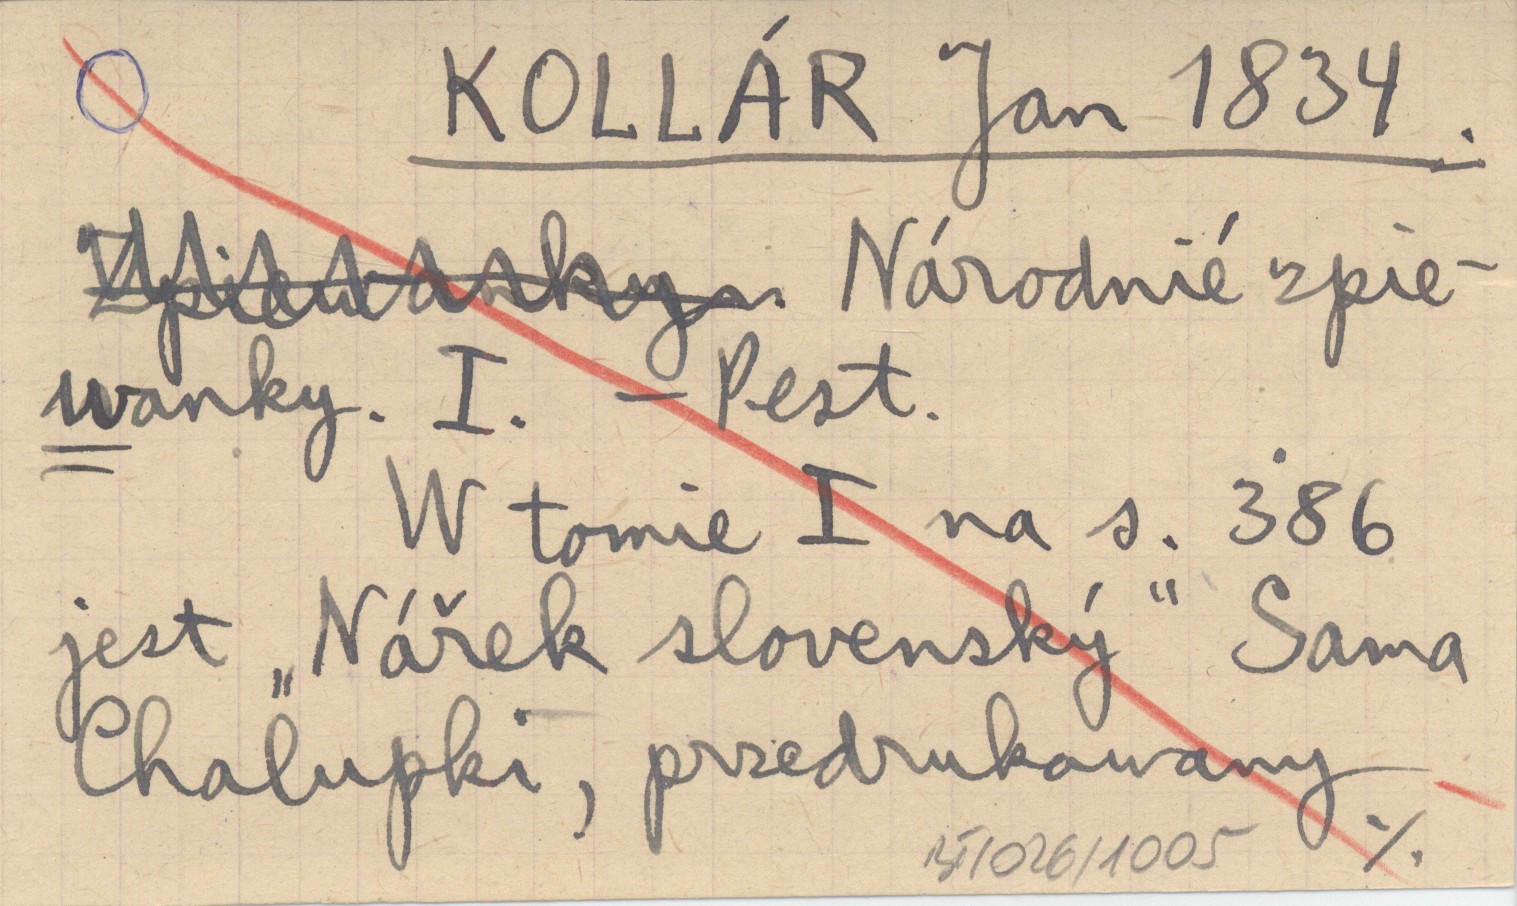 KOLLÁR Jan 1834.
Zpiewanky. Národnié zpie-
wanky. I. – Pest.
W tomie I na s. 386
jest „Nářek slovenský“ Sama
Chalupki, przedrukowany
./.
/026/1005